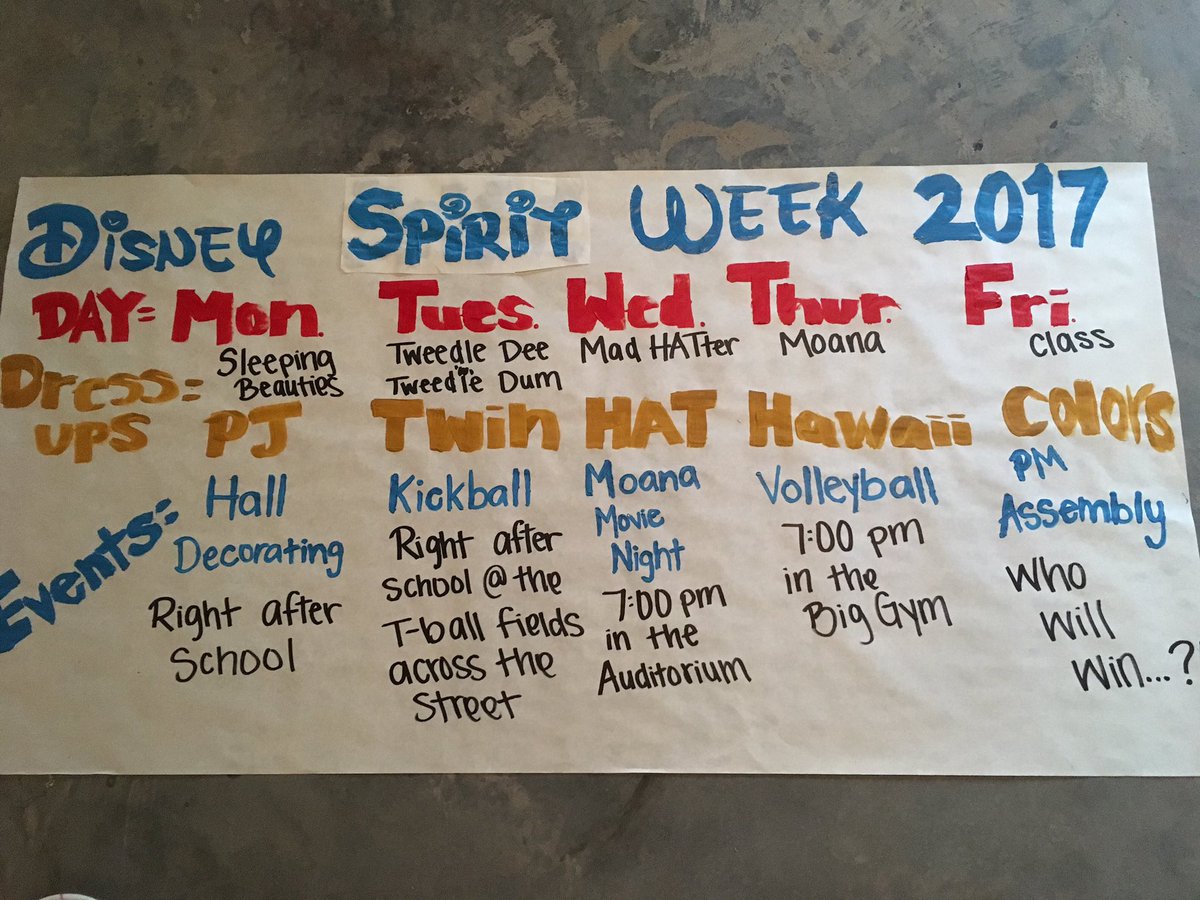 Disney Spirit Week 2017
DAY= Mon. Tues. Wed. Thur. Fri.
Sleeping Beauties
Tweedle Dee
Tweedle Dum
Mad HATter
Moana
Class
Dress= ups
PJ Twin HAT Hawaii Colors
Events=
Hall
Decorating
Right after
School
Kickball
Right after
school @ the
T-ball fields
across the
Street
Moana
Movie
Night
7:00 pm
in the
Auditorium
Volleyball
7:00 pm
in the
Big Gym
PM
Assembly
Who
Will
Win...?